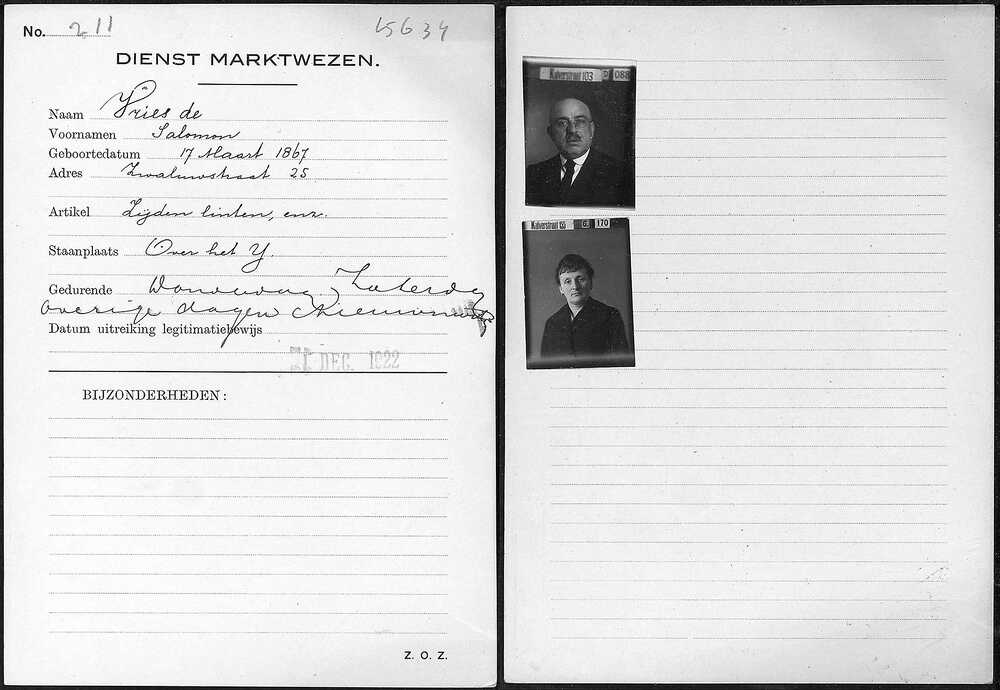 No. 211
15634
DIENST MARKTWEZEN.
Naam Vries de
Voornamen Salomon
Geboortedatum 17 Maart 1867
Adres Zwaluwstraat 25
Artikel Zijden linten, enz.
Staanplaats Over het Y.
Gedurende Woensdag, Zaterdag
overige dagen Nieuwmarkt
Datum uitreiking legitimatiebewijs
DEC. 1922
BIJZONDERHEDEN:
Z. O. Z.
Kalverstraat 103 D 088
Kalverstraat 170